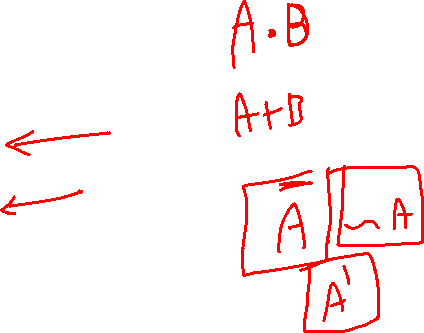 A·B
A+B
A̅ ~A
A'